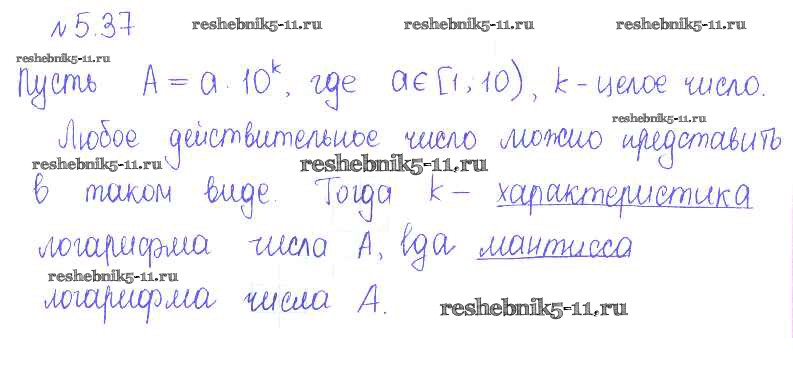 № 5.37 reshebnik5-11.ru reshebnik5-11.ru reshebnik5-11.ru
reshebnik5-11.ru
Пусть A = a · 10^k, где a ∈ [1, 10), k - целое число.
reshebnik5-11.ru
Любое действительное число можно представить
reshebnik5-11.ru reshebnik5-11.ru
в таком виде. Тогда k - характеристика
логарифма числа A, lga мантисса
reshebnik5-11.ru
логарифма числа A.
reshebnik5-11.ru